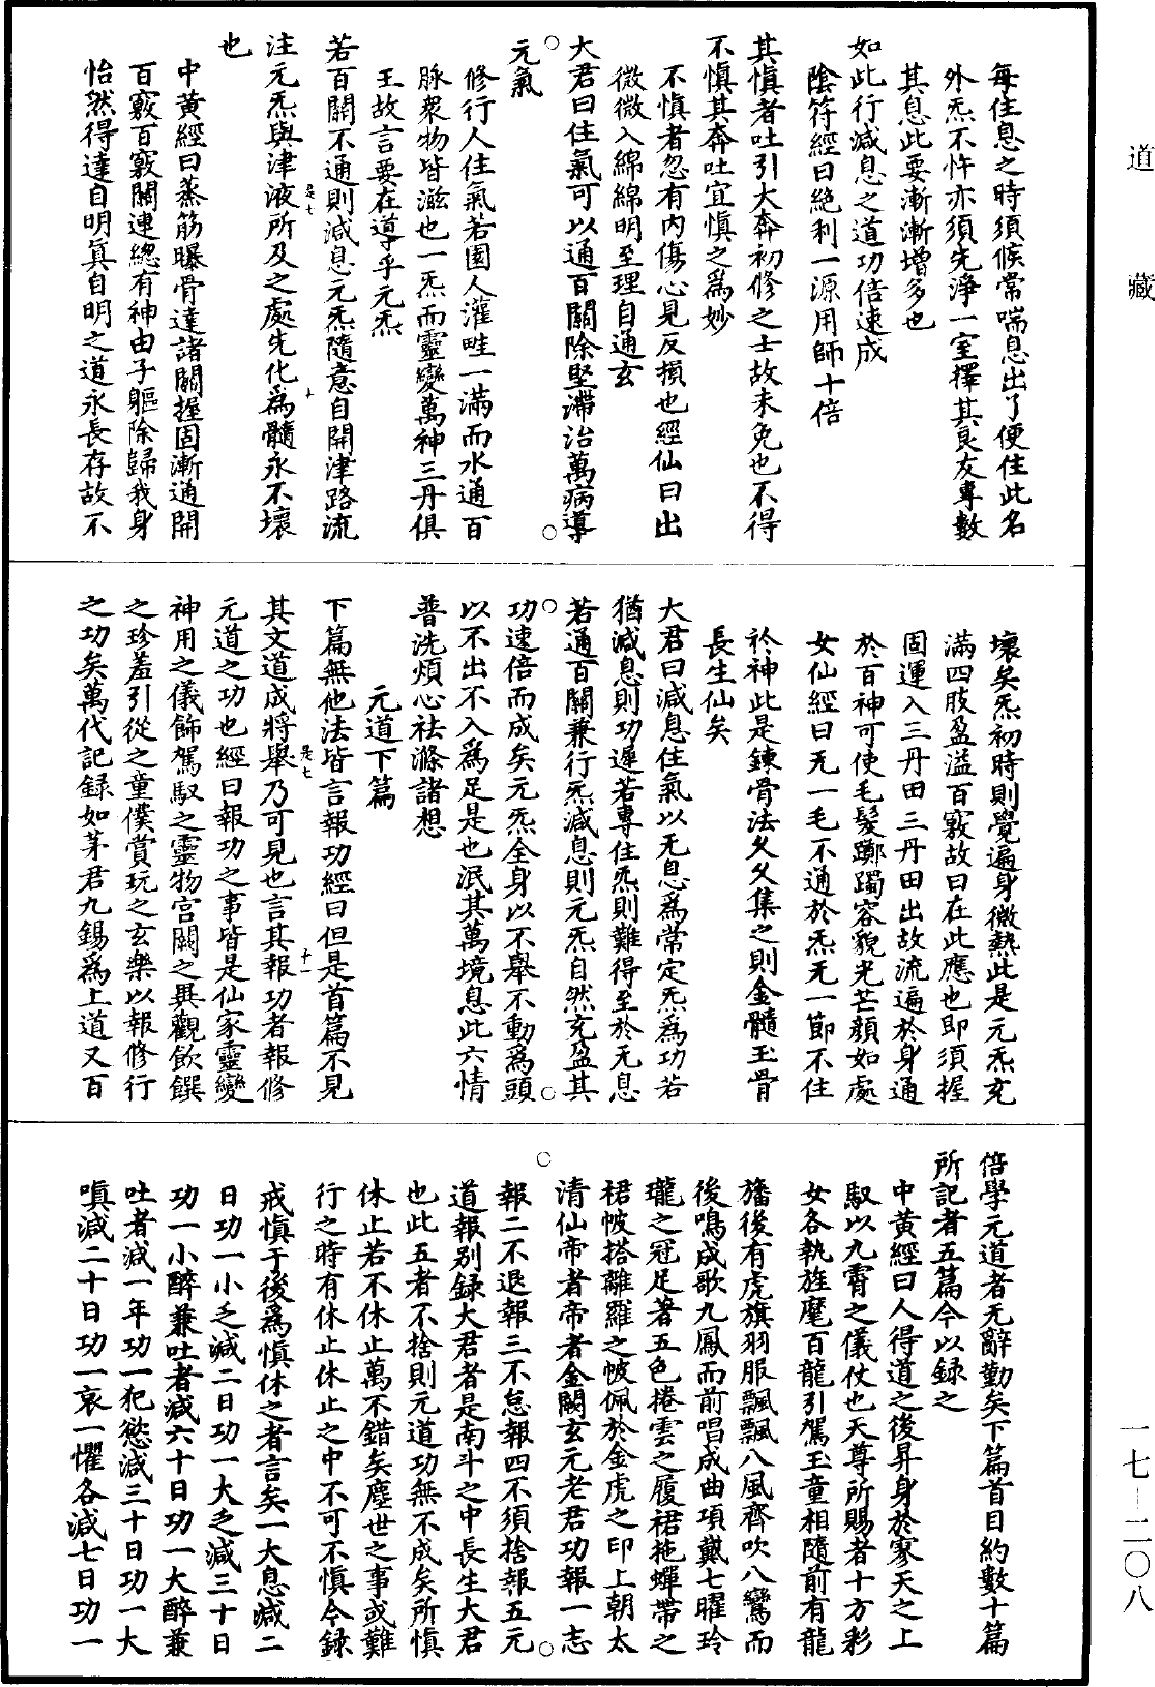 道藏
每住息之時須候常喘息出了便住此名
外炁不忤亦須先淨一室擇其良友專數
其息此要漸漸增多也
如此行減息之道功倍速成
陰符經曰絕利一源用師十倍
其慎者吐引大奔初修之士故未免也不得
不慎其奔吐宜慎之爲妙
不慎者忽有內傷心見反損也經仙曰出
微微入綿綿明至理自通玄
大君曰住氣可以通百關除堅滯治萬病導
元氣
修行人住氣若園人灌畦一滿而水通百
脉衆物皆滋也一炁而靈變萬神三丹俱
王故言要在導乎元炁
若百關不通則減息元炁隨意自開津路流
注元炁與津液所及之處先化爲髓永不壞
也
中黃經曰蒸筋曝骨達諸關握固漸通開
百竅百竅關連總有神由子軀除歸我身
怡然得達自明真自明之道永長存故不
壞矣炁初時則覺遍身微熱此是元炁充
滿四肢盈溢百竅故曰在此應也即須握
固運入三丹田三丹田出故流遍於身通
於百神可使毛髮躑躅容貌光芒顔如處
女仙經曰无一毛不通於炁无一節不住
於神此是鍊骨法久久集之則金髓玉骨
長生仙矣
大君曰減息住氣以无息爲常定炁爲功若
猶減息則功遲若專住炁則難得至於无息
若通百關兼行炁減息則元炁自然充盈其
功速倍而成矣元炁全身以不舉不動爲頭
以不出不入爲足是也泯其萬境息此六情
普洗煩心祛滌諸想
元道下篇
下篇無他法皆言報功經曰但是首篇不見
其文道成將舉乃可見也言其報功者報修
元道之功也經曰報功之事皆是仙家靈變
神用之儀飾駕馭之靈物宮闕之異觀飲饌
之珍羞引從之童僕賞玩之玄樂以報修行
之功矣萬代記録如茅君九錫爲上道又百
倍學元道者无辭勤矣下篇首目約數十篇
所記者五篇今以録之
中黃經曰人得道之後昇身於寥天之上
馭以九霄之儀仗也天尊所賜者十方彩
女各執旌麾百龍引駕玉童相隨前有龍
旛後有虎旗羽服飄飄八風齊吹八鸞而
後鳴成歌九鳳而前唱成曲項戴七曜玲
瓏之冠足著五色捲雲之履裙拖蟬帶之
裙帔搭離羅之帔佩於金虎之印上朝太
清仙帝者帝者金闕玄元老君功報一志
報二不退報三不怠報四不須捨報五元
道報别録大君者是南斗之中長生大君
也此五者不捨則元道功無不成矣所慎
休止若不休止萬不錯矣塵世之事或難
行之時有休止休止之中不可不慎今録
戒慎于後爲慎休之者言矣一大息減二
日功一小乏減二日功一大乏減三十日
功一小醉兼吐者減六十日功一大醉兼
吐者減一年功一犯慾減三十日功一大
嗔減二十日功一哀一懼各減七日功一
一七—二〇八